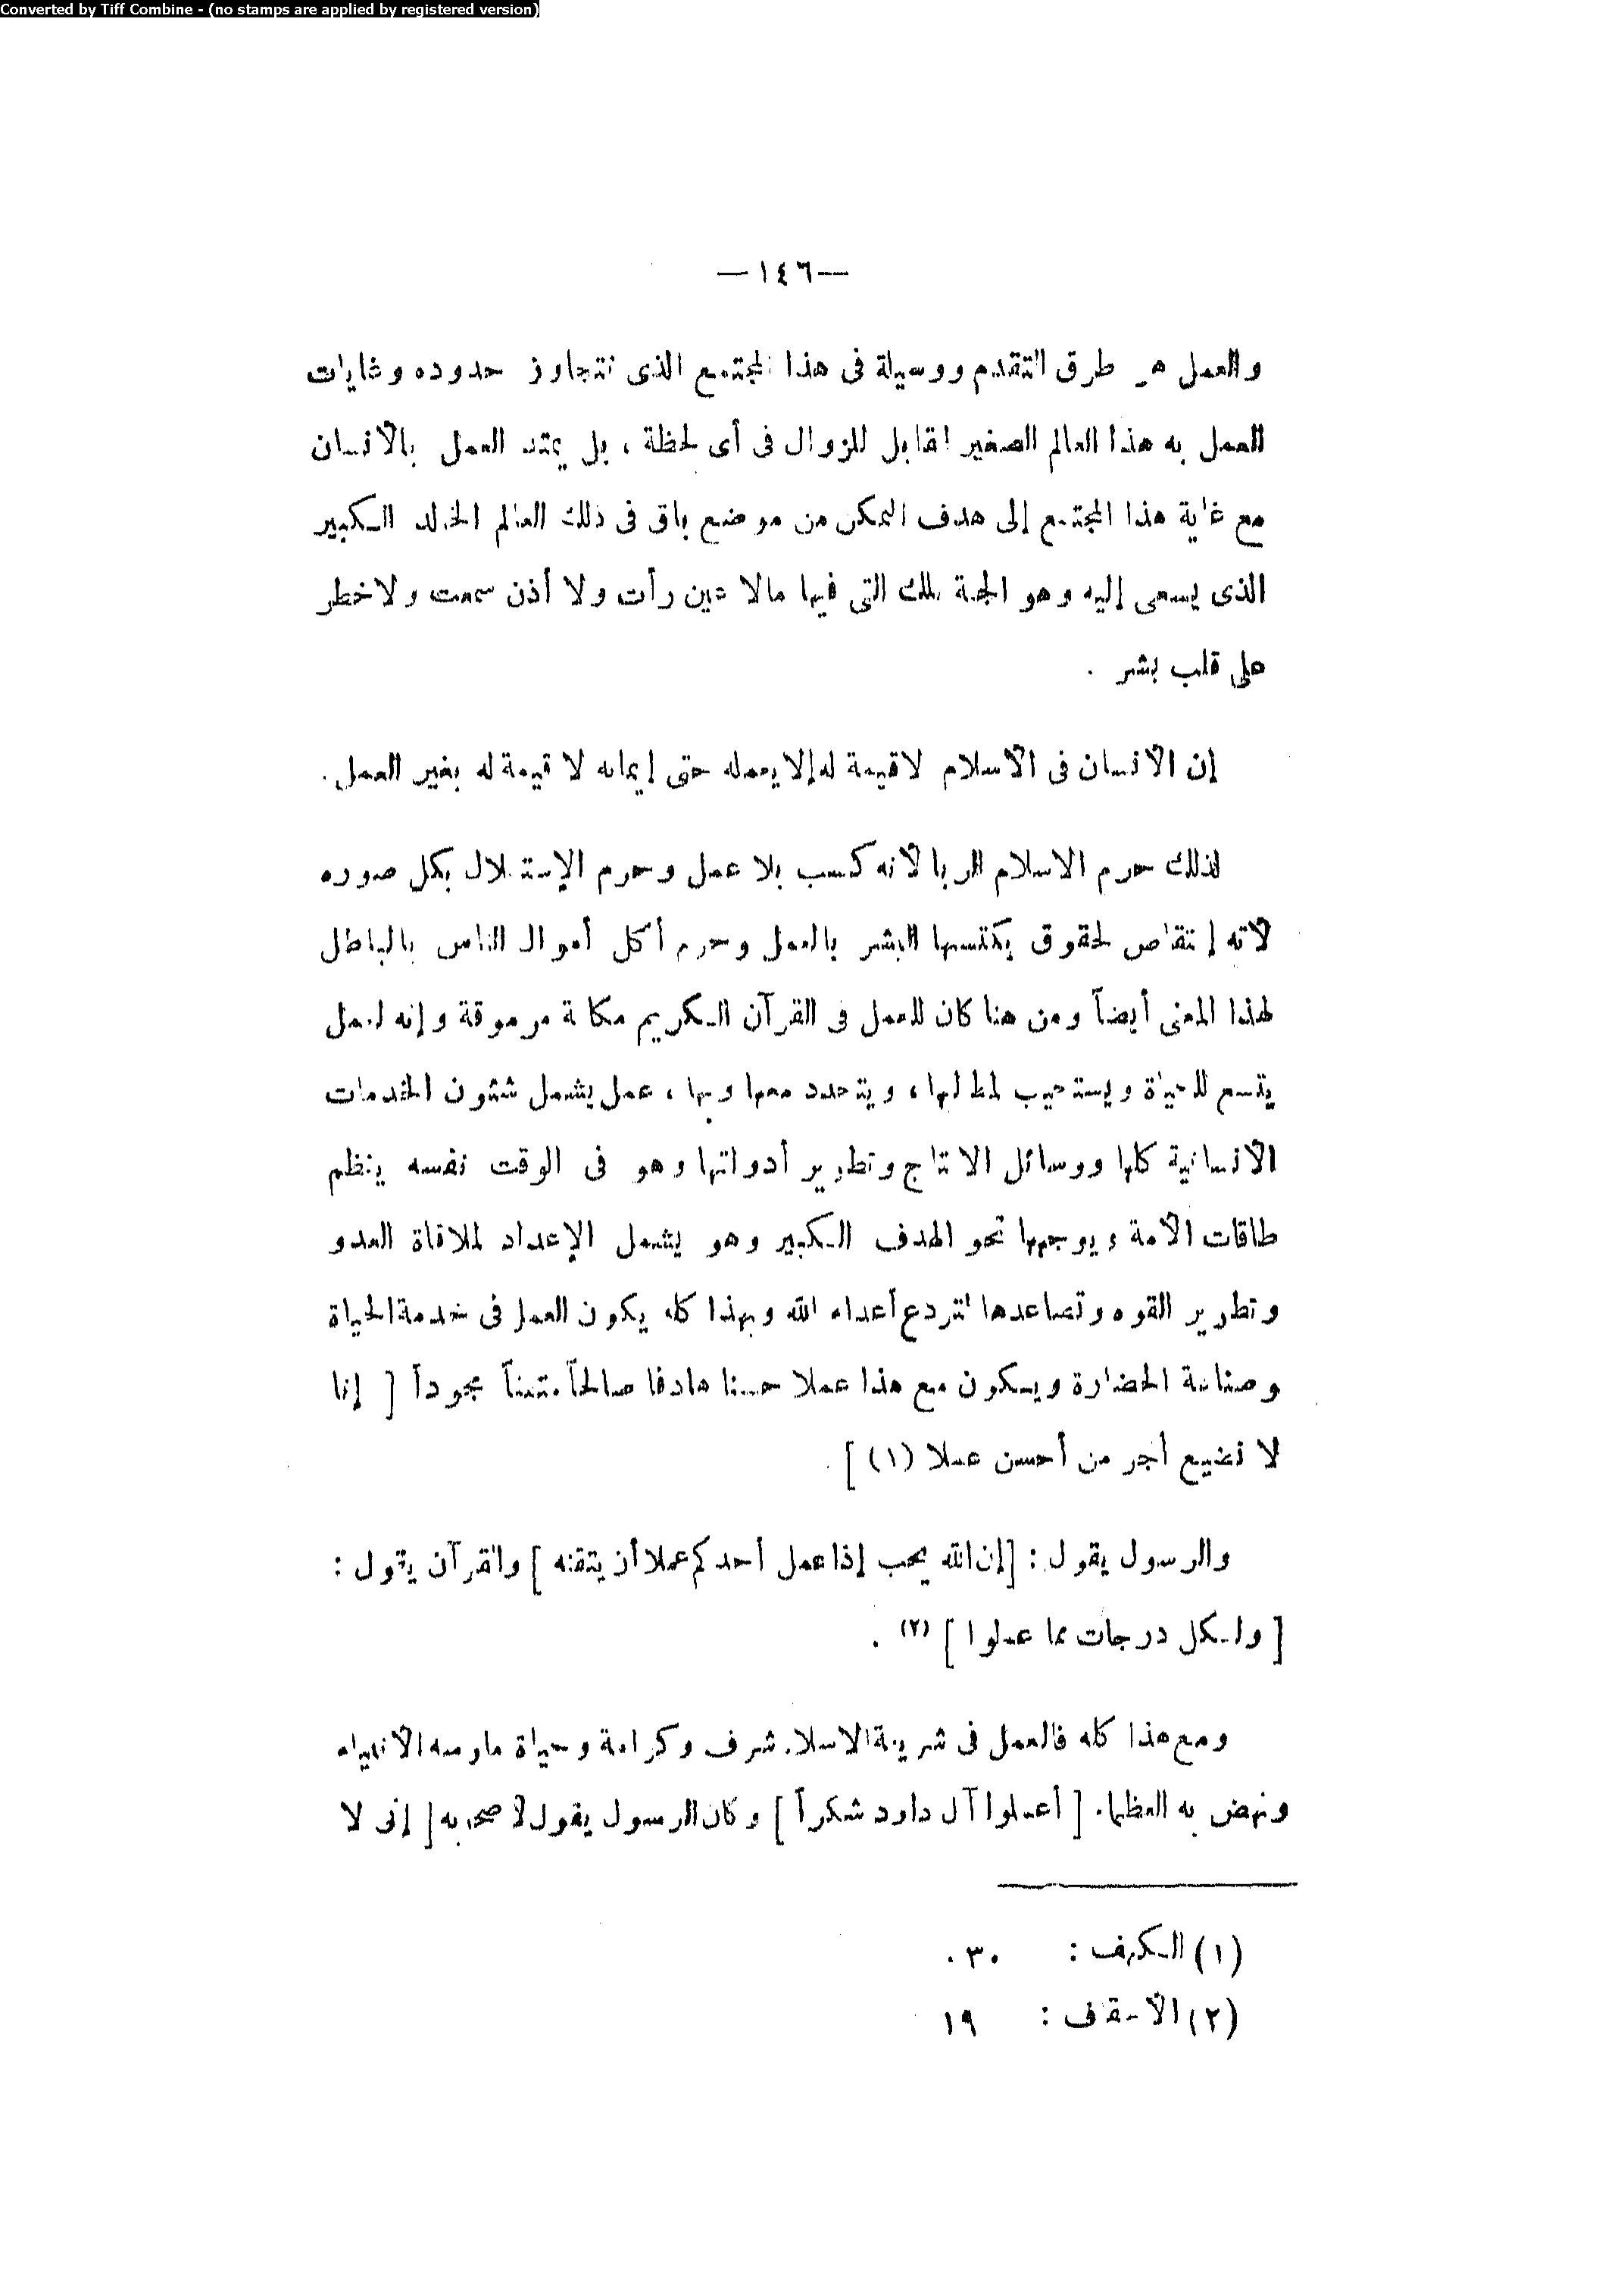 Converted by Tiff Combine - (no stamps are applied by registered version)
—١٤٦—
والعمل هو طرق التقدم ووسيلة فى هذا المجتمع الذى تتجاوز حدوده وغايات
العمل به هذا العالم الصغير القابل للزوال فى أى لحظة ، بل يمتد العمل بالانسان
مع غاية هذا المجتمع إلى هدف التمكن من موضع باق فى ذلك العالم الخالد الكبير
الذى يسعى إليه وهو الجنة تلك التى فيها مالا عين رأت ولا أذن سمعت ولا خطر
على قلب بشر .
إن الانسان فى الاسلام لا قيمة له إلا بعمله حتى إيمانه لا قيمة له بغير العمل .
لذلك حرم الاسلام الربا لأنه كسب بلا عمل وحرم الإستغلال بكل صوره
لانه إنتقاص لحقوق يكتسبها البشر بالعمل وحرم أكل أموال الناس بالباطل
لهذا المعنى أيضاً ومن هنا كان للعمل فى القرآن الكريم مكانة مرموقة وإنه لعمل
يتسع للحياة ويستجيب لمطالبها ، ويتحدد معها وبها ، عمل يشمل شئون الخدمات
الانسانية كلها ووسائل الانتاج وتطوير أدواتها وهو فى الوقت نفسه ينظم
طاقات الأمة ويوجهها نحو الهدف الكبير وهو يشمل الإعداد لملاقاة العدو
وتطوير القوه وتصاعدها لتردع أعداء الله وبهذا كله يكون العمل فى خدمة الحياة
وصناعة الحضارة ويكون مع هذا عملا حسنا هادفا صالحاً متقناً مجوداً [ إنا
لا نضيع أجر من أحسن عملا (١) ] .
والرسول يقول : [ إن الله يحب إذا عمل أحدكم عملا أن يتقنه ] والقرآن يقول :
[ ولكل درجات مما عملوا ] (٢) .
ومع هذا كله فالعمل فى شريعة الاسلام شرف وكرامة وحياة مارسه الانبياء
ونهض به العظماء [ أعملوا آل داود شكراً ] وكان الرسول يقول لأصحابه [ إنى لا
(١) الكهف : ٣٠ .
(٢) الأحقاف : ١٩